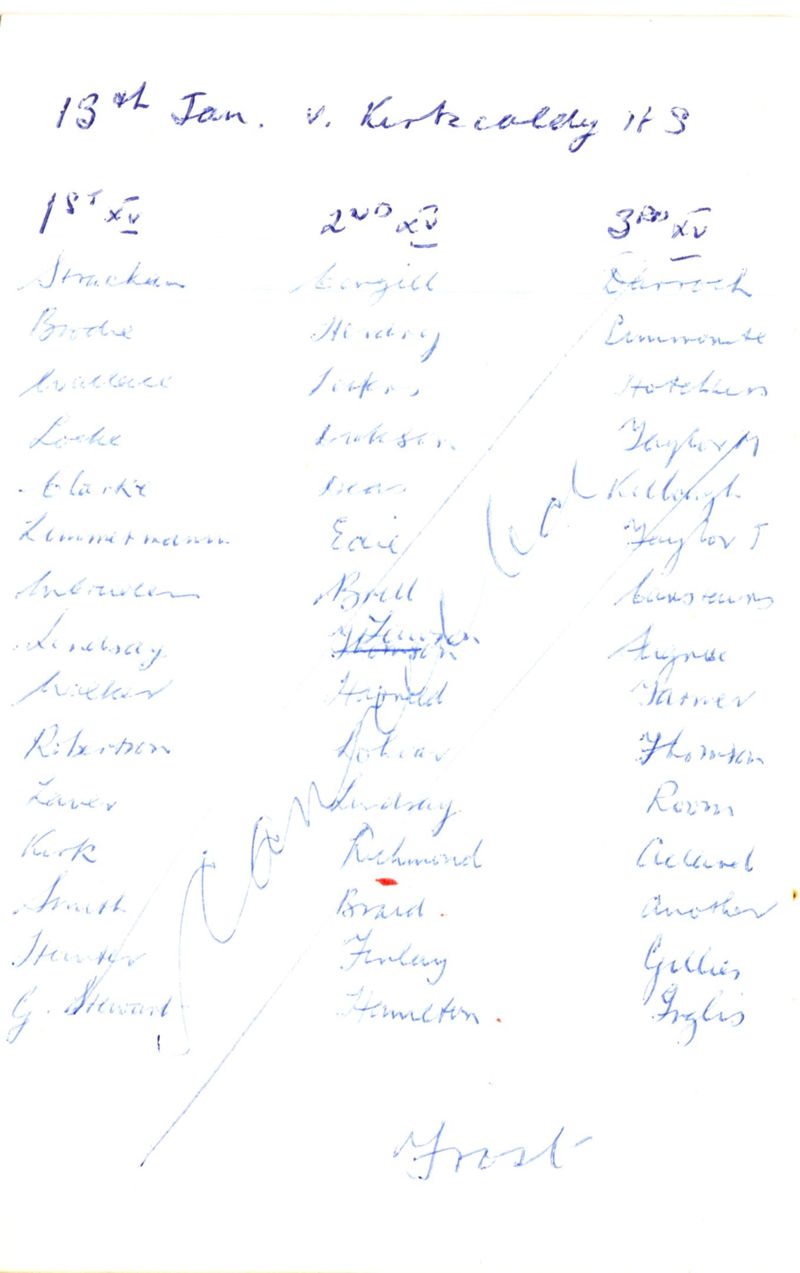 13th Jan. v. Kirkcaldy HS
1ST XV 2ND XV 3RD XV
Strachan Cargill Darroch
Brodie Hendry
Wallace Hotchkiss
Locke Dickson Taylor M
Clarke Dear Kellough
Zimmermann Edie Taylor T
Bell
Lindsay Thomson
Walker Harrold Turner
Robertson Thomson
Laver Lindsay Room
Kirk Richmond
Smith Braid. Another
Hunter Finlay Gillies
G. Stewart Hamilton. Inglis
Cancelled
Frost